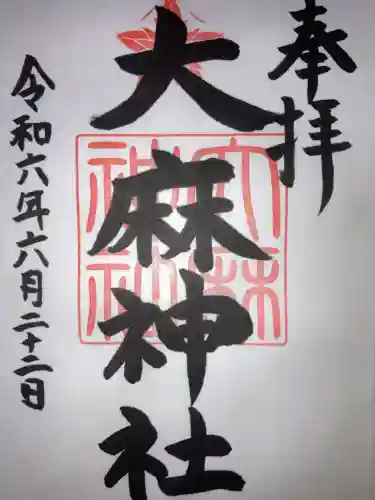 奉拝
大麻神社
大麻
神社
令和六年六月二十二日